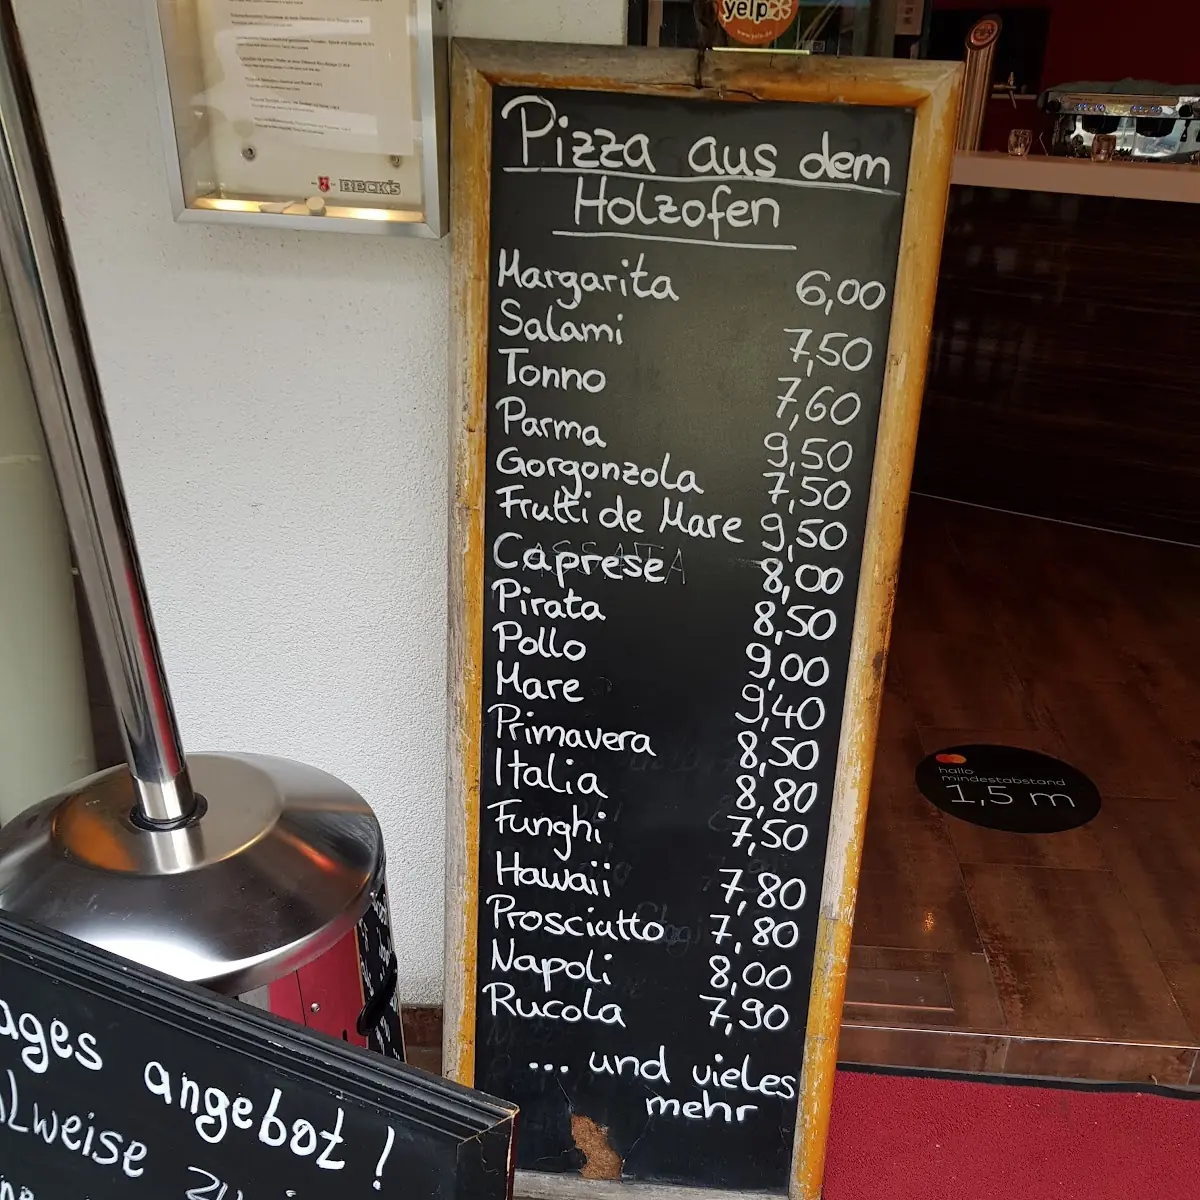 yelp
www.yelp.de
BECK'S
Pizza aus dem
Holzofen
Margarita 6,00
Salami 7,50
Tonno 7,60
Parma 9,50
Gorgonzola 7,50
Frutti de Mare 9,50
Caprese 8,00
Pirata 8,50
Pollo 9,00
Mare 9,40
Primavera 8,50
Italia 8,80
Funghi 7,50
Hawaii 7,80
Prosciatto 7,80
Napoli 8,00
Rucola 7,90
... und vieles
mehr
hallo
mindestabstand
1,5 m
ages angebot!